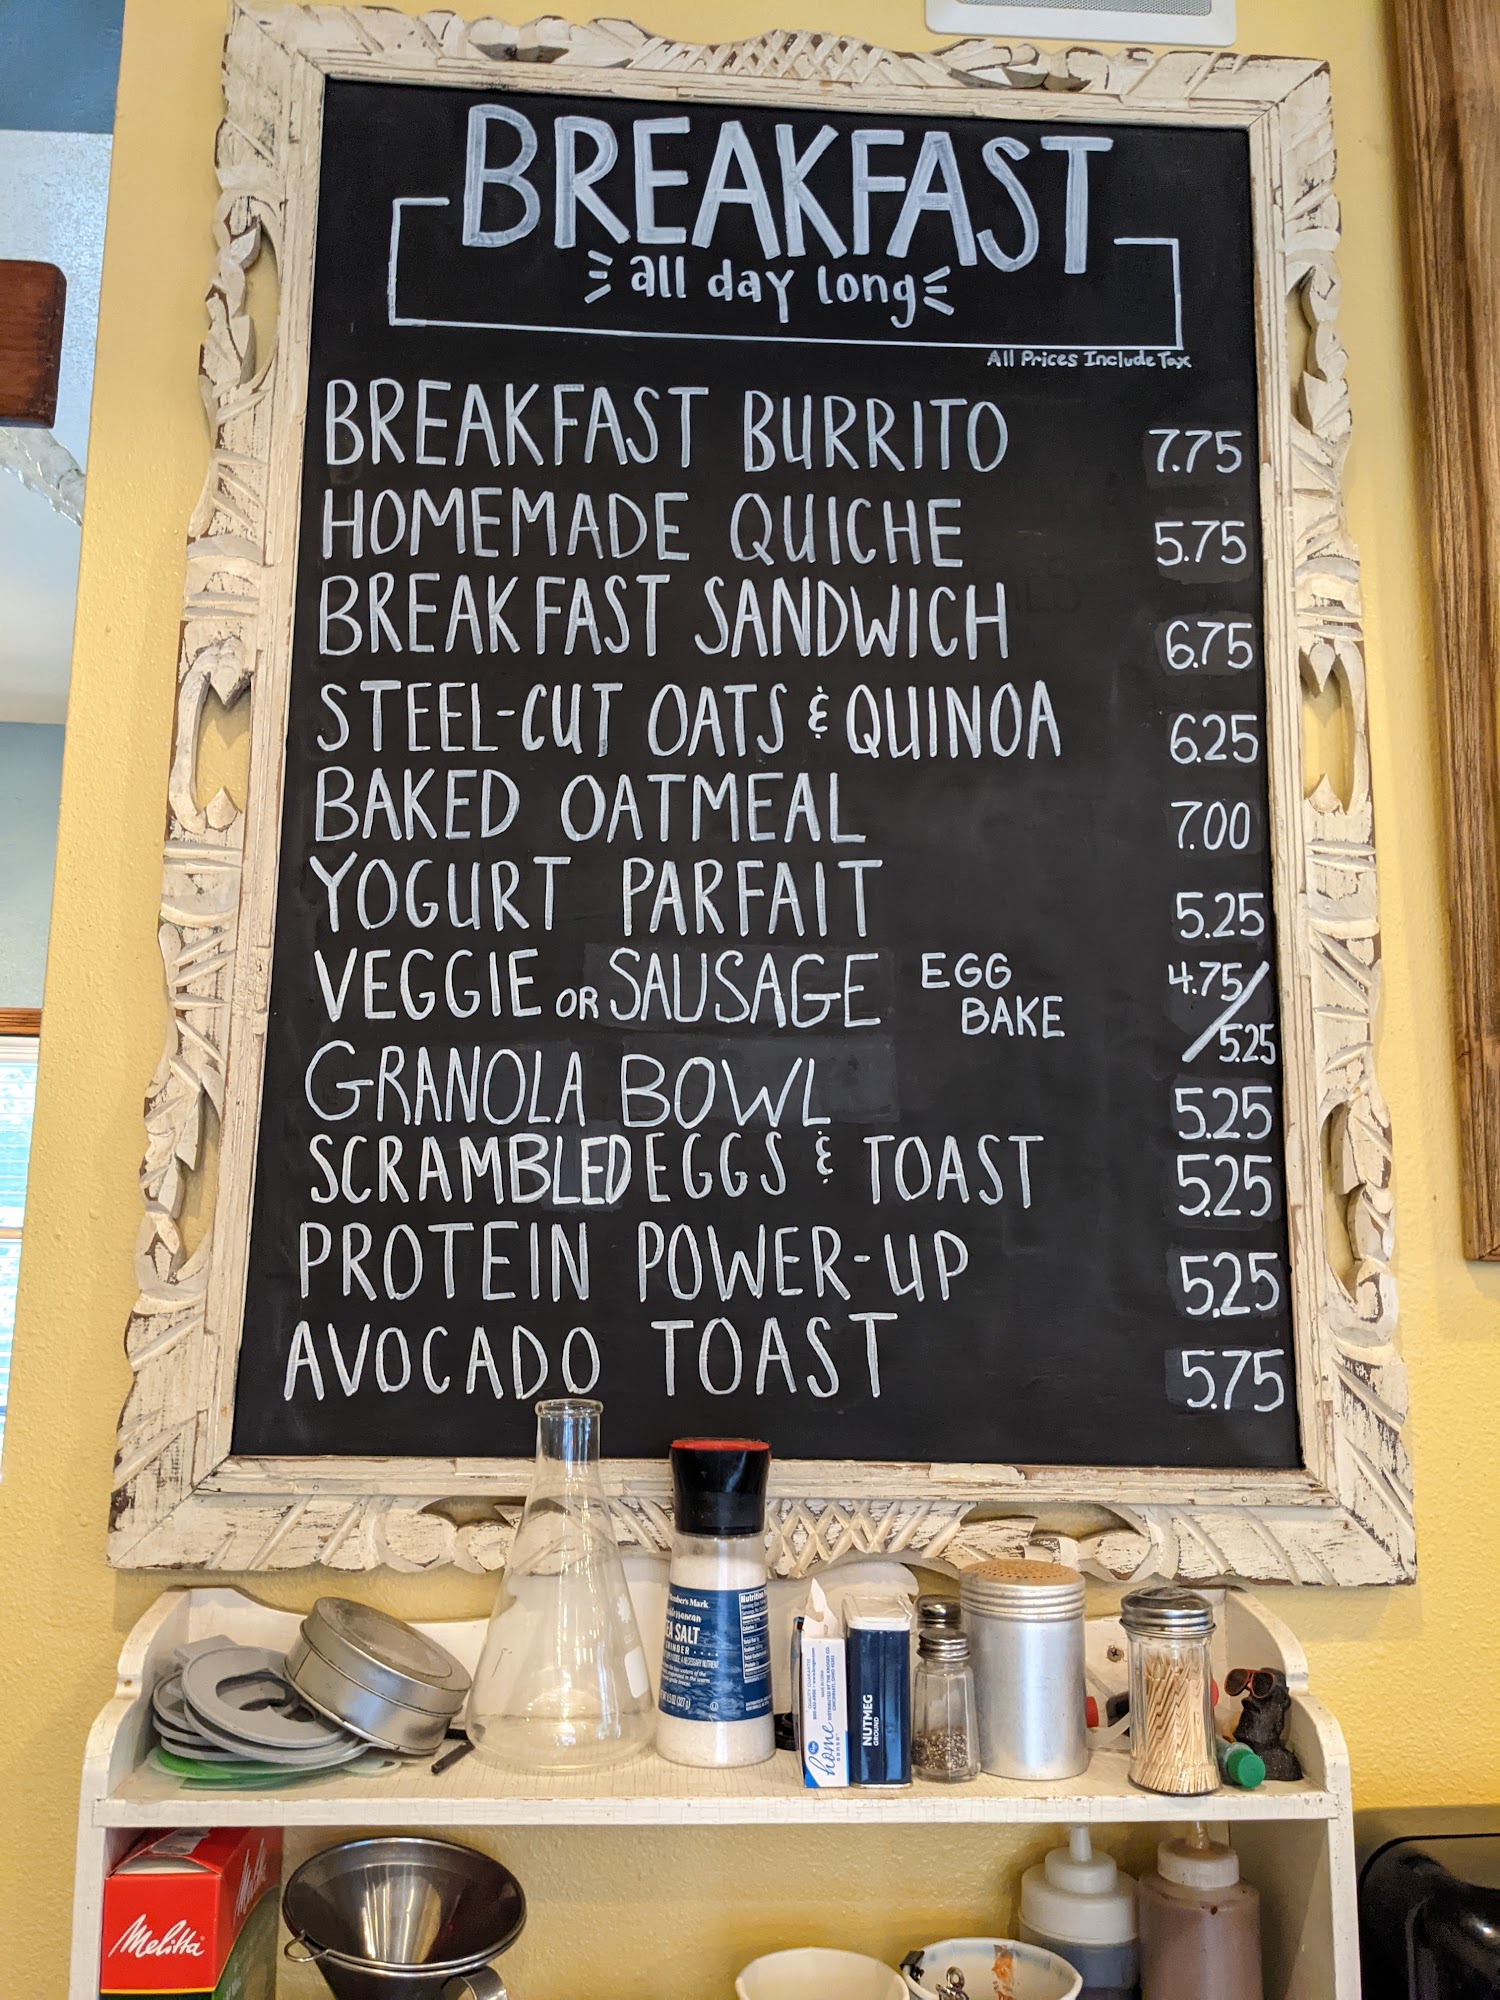 BREAKFAST
all day long
All Prices Include Tax
BREAKFAST BURRITO 7.75
HOMEMADE QUICHE 5.75
BREAKFAST SANDWICH 6.75
STEEL-CUT OATS & QUINOA 6.25
BAKED OATMEAL 7.00
YOGURT PARFAIT 5.25
VEGGIE OR SAUSAGE EGG BAKE 4.75/5.25
GRANOLA BOWL 5.25
SCRAMBLED EGGS & TOAST 5.25
PROTEIN POWER-UP 5.25
AVOCADO TOAST 5.75
Mark
SALT
Nutrition
home
NUTMEG
GROUND
Melitta
Melitta